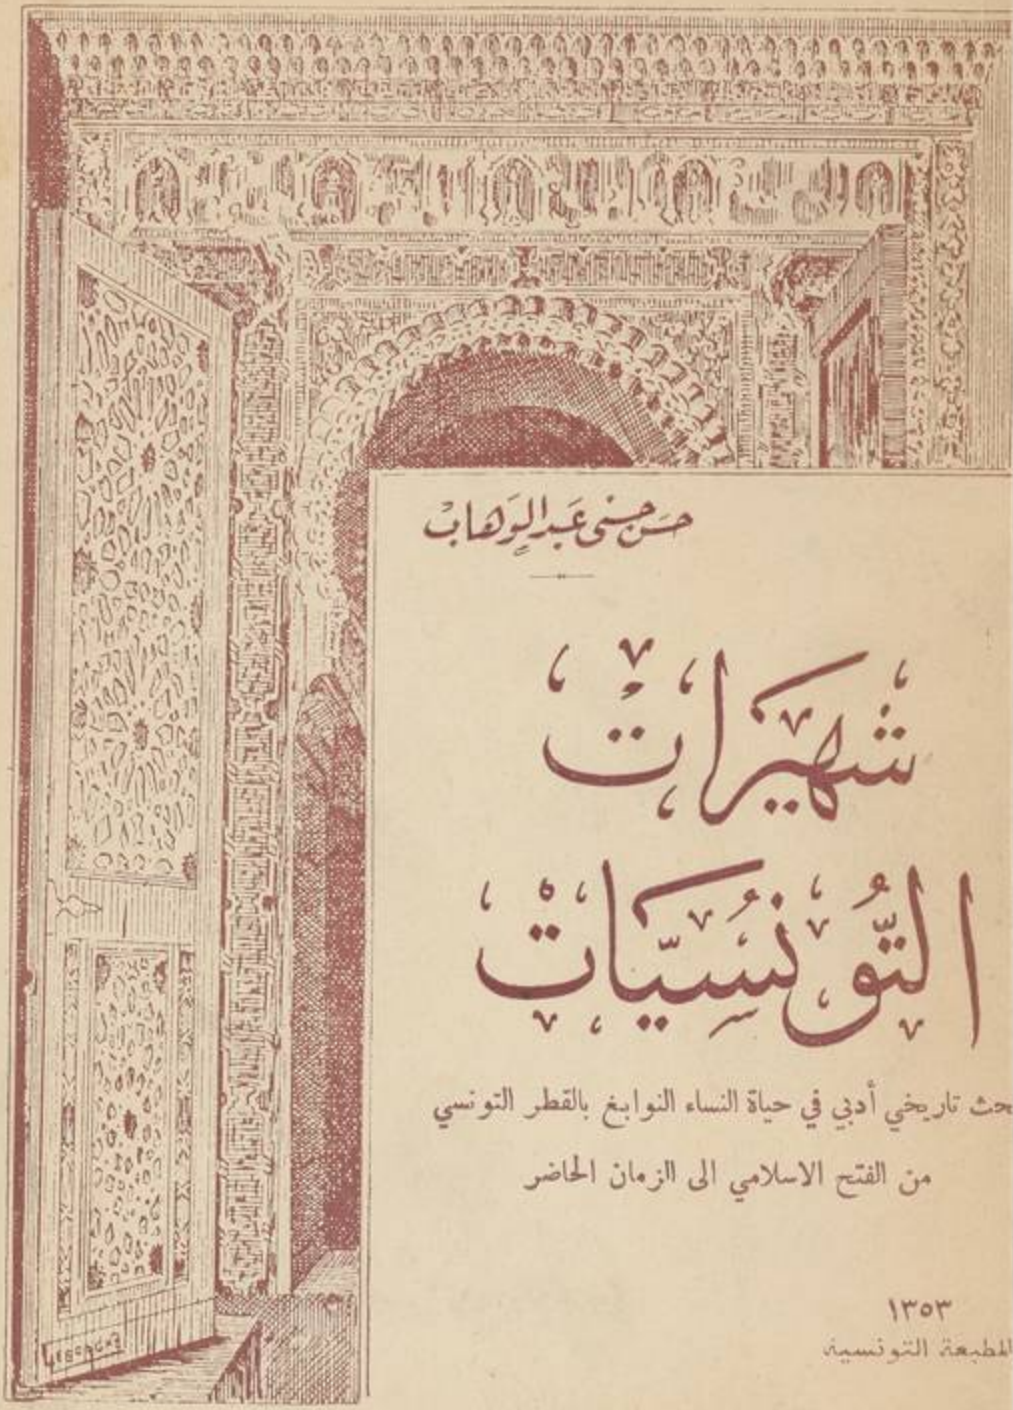 حسن حسني عبد الوهاب
شهيرات
التونسيات
بحث تاريخي أدبي في حياة النساء النوابغ بالقطر التونسي
من الفتح الاسلامي الى الزمان الحاضر
١٣٥٣
المطبعة التونسية